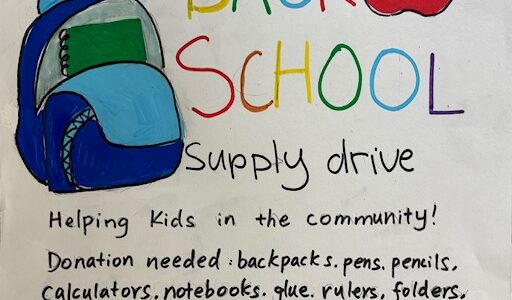 BACK
SCHOOL
Supply drive
Helping Kids in the community!
Donation needed: backpacks. pens. pencils.
calculators. notebooks. glue. rulers. folders.